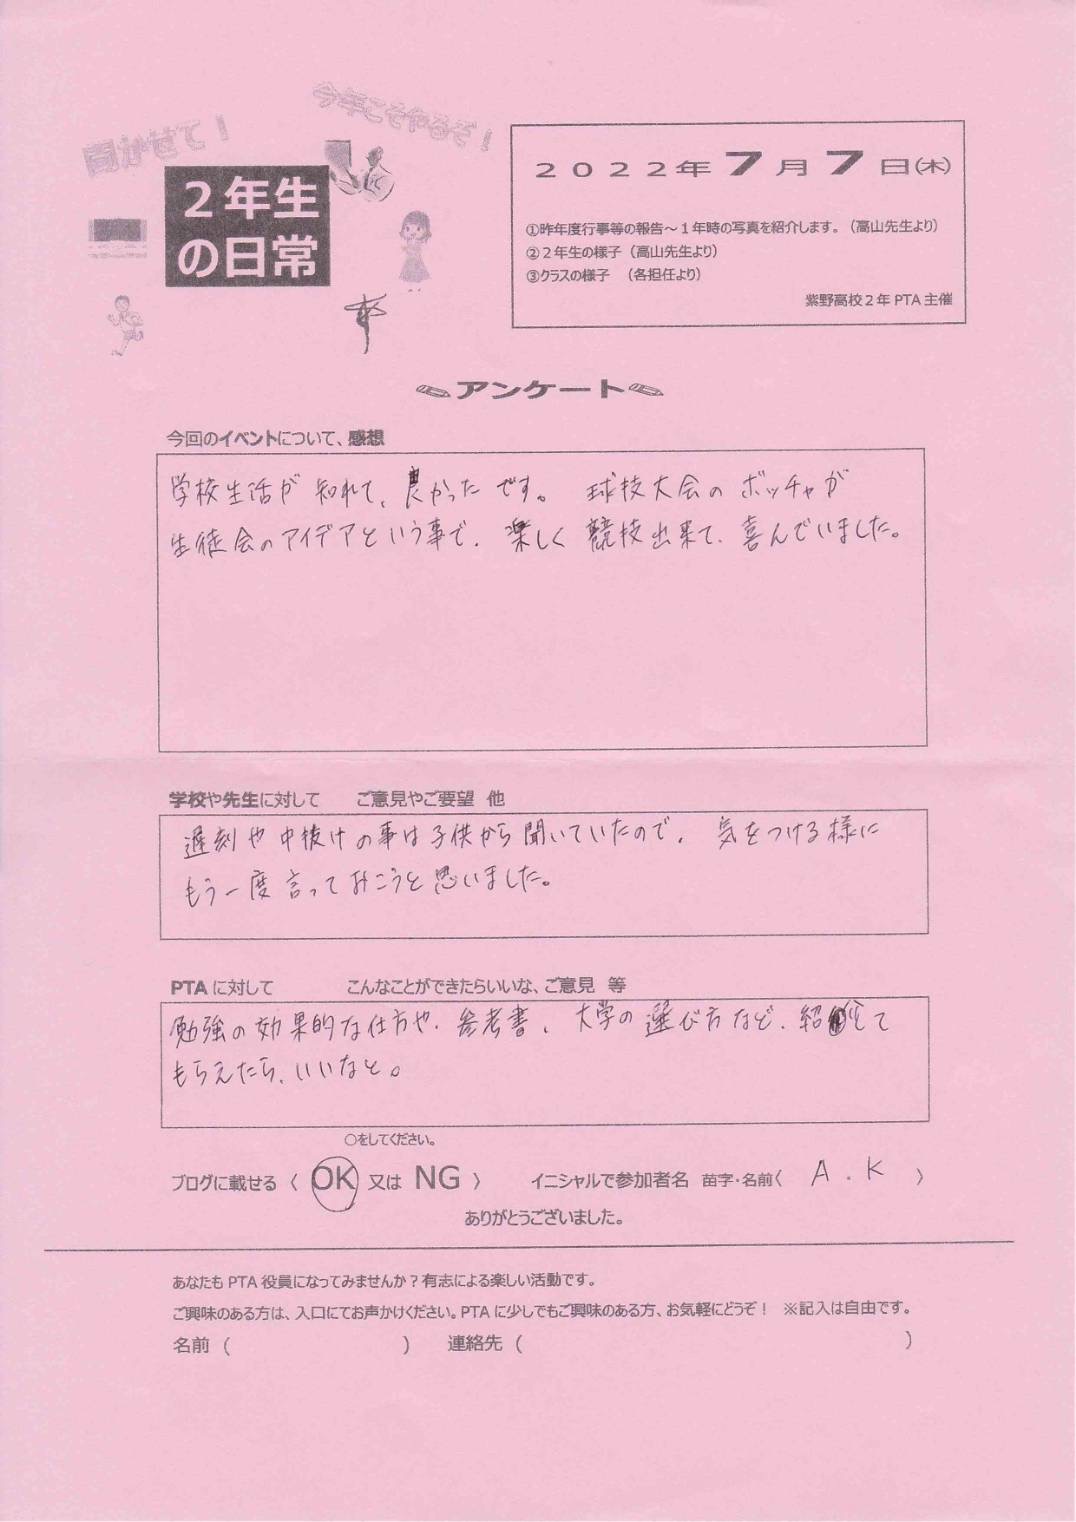 聞かせて！
今年こそやるぞ！
２年生
の日常
２０２２年７月７日(木)
①昨年度行事等の報告～１年時の写真を紹介します。（高山先生より）
②２年生の様子（高山先生より）
③クラスの様子　（各担任より）
紫野高校２年PTA主催
アンケート
今回のイベントについて、感想
学校生活が知れて、良かったです。球技大会のボッチャが
生徒会のアイデアという事で、楽しく競技出来て、喜んでいました。
学校や先生に対して　　ご意見やご要望　他
遅刻や中抜けの事は子供から聞いていたので、気をつける様に
もう一度言っておこうと思いました。
PTAに対して　　こんなことができたらいいな、ご意見　等
勉強の効果的な仕方や、参考書、大学の選び方など、紹介して
もらえたら、いいなと。
○をしてください。
ブログに載せる（ OK 又は NG ）　イニシャルで参加者名　苗字・名前（ A . K ）
ありがとうございました。
あなたもPTA役員になってみませんか？有志による楽しい活動です。
ご興味のある方は、入口にてお声かけください。PTAに少しでもご興味のある方、お気軽にどうぞ！　※記入は自由です。
名前（　　　　　　　　）　連絡先（　　　　　　　　　　　　　　　　）